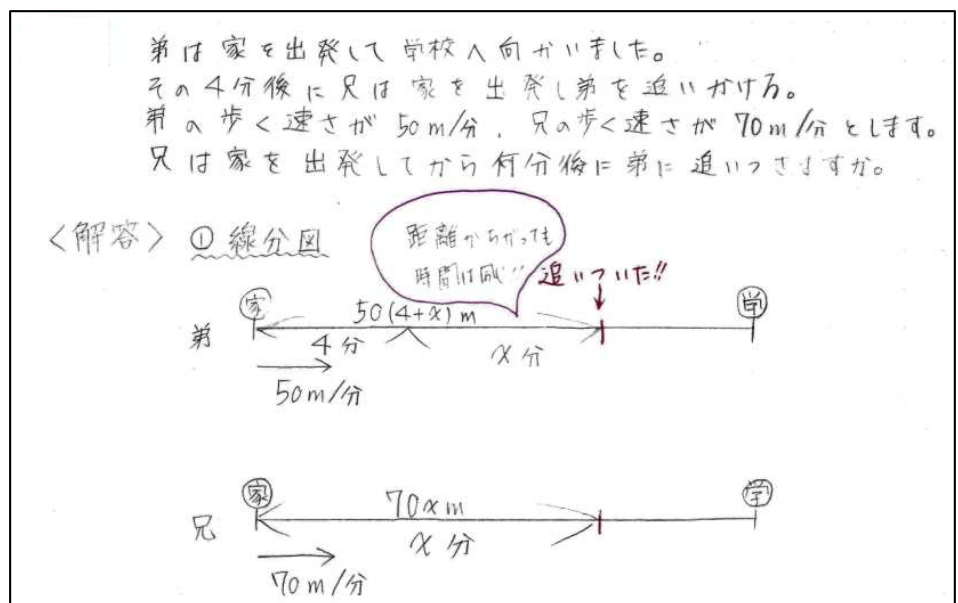 弟は家を出発して学校へ向かいました。
その4分後に兄は家を出発し弟を追いかける。
弟の歩く速さが50m/分、兄の歩く速さが70m/分とします。
兄は家を出発してから何分後に弟に追いつきますか。
〈解答〉 ① 線分図
距離がちがっても
時間は同じ!!
追いついた!!
家
50(4+x)m
学
弟
4分
x分
50m/分
家
70xm
学
兄
x分
70m/分